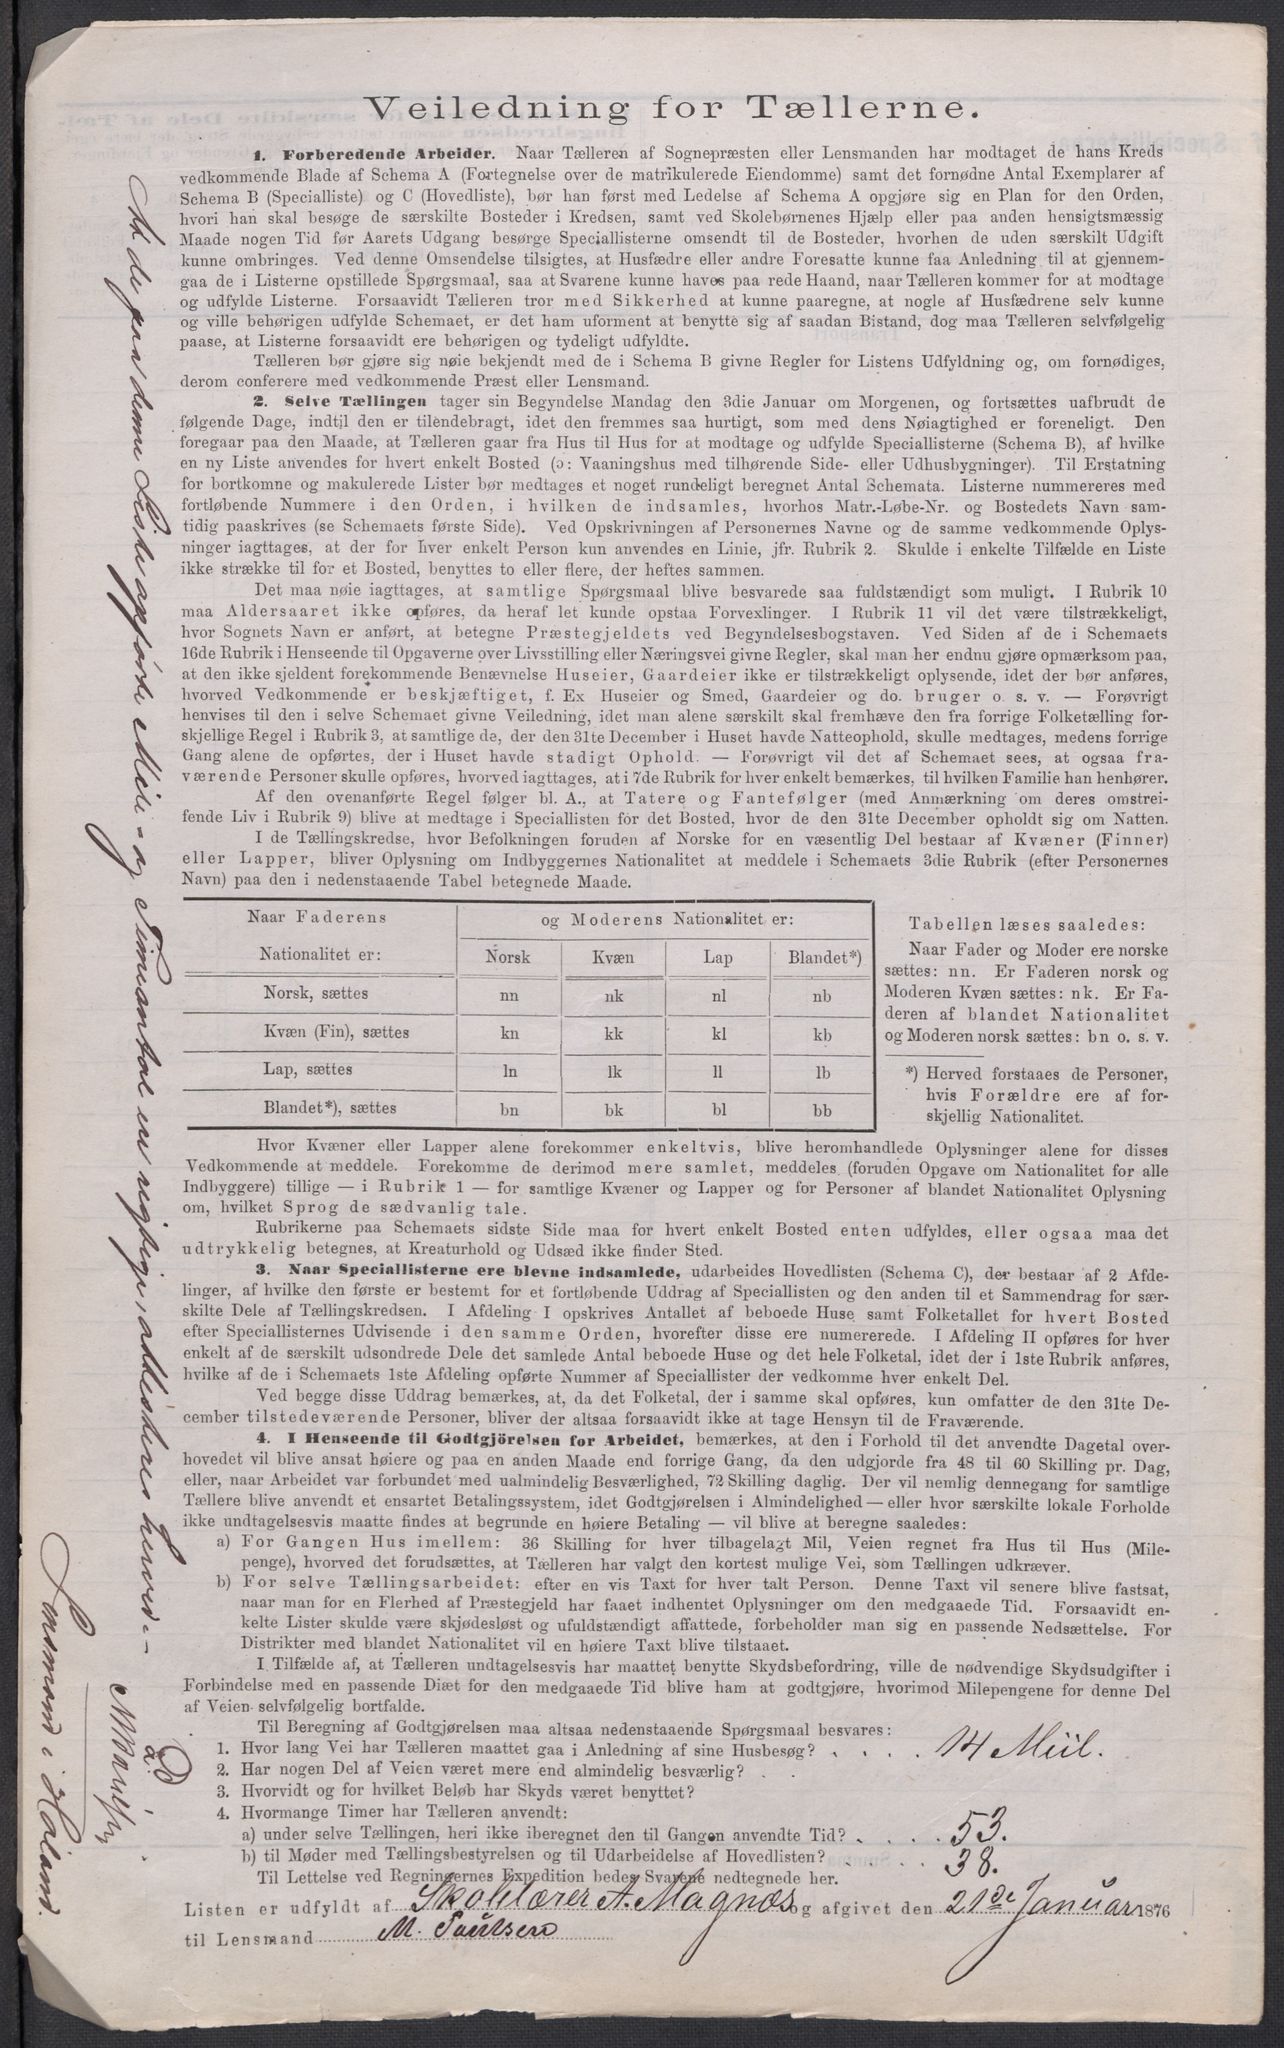 Veiledning for Tællerne.
1. Forberedende Arbeider. Naar Tælleren af Sognepræsten eller Lensmanden har modtaget de hans Kreds
vedkommende Blade af Schema A (Fortegnelse over de matrikulerede Eiendomme) samt det fornødne Antal Exemplarer af
Schema B (Specialliste) og C (Hovedliste), bør han først med Ledelse af Schema A opgjøre sig en Plan for den Orden,
hvori han skal besøge de særskilte Bosteder i Kredsen, samt ved Skolebørnenes Hjælp eller paa anden hensigtsmæssig
Maade nogen Tid før Aarets Udgang besørge Speciallisterne omsendt til de Bosteder, hvorhen de uden særskilt Udgift
kunne ombringes. Ved denne Omsendelse tilsigtes, at Husfædre eller andre Foresatte kunne faa Anledning til at gjennem-
gaa de i Listerne opstillede Spørgsmaal, saa at Svarene kunne haves paa rede Haand, naar Tælleren kommer for at modtage
og udfylde Listerne. Forsaavidt Tælleren tror med Sikkerhed at kunne paaregne, at nogle af Husfædrene selv kunne
og ville behørigen udfylde Schemaet, er det ham uforment at benytte sig af saadan Bistand, dog maa Tælleren selvfølgelig
paase, at Listerne forsaavidt ere behørigen og tydeligt udfyldte.
Tælleren bør gjøre sig nøie bekjendt med de i Schema B givne Regler for Listens Udfyldning og, om fornødiges,
derom conferere med vedkommende Præst eller Lensmand.
2. Selve Tællingen tager sin Begyndelse Mandag den 3die Januar om Morgenen, og fortsættes uafbrudt de
følgende Dage, indtil den er tilendebragt, idet den fremmes saa hurtigt, som med dens Nøiagtighed er foreneligt. Den
foregaar paa den Maade, at Tælleren gaar fra Hus til Hus for at modtage og udfylde Speciallisterne (Schema B), af hvilke
en ny Liste anvendes for hvert enkelt Bosted (ɔ: Vaaningshus med tilhørende Side- eller Udhusbygninger). Til Erstatning
for bortkomne og makulerede Lister bør medtages et noget rundeligt beregnet Antal Schemata. Listerne nummereres med
fortløbende Nummere i den Orden, i hvilken de indsamles, hvorhos Matr.-Løbe-Nr. og Bostedets Navn sam-
tidig paaskrives (se Schemaets første Side). Ved Opskrivningen af Personernes Navne og de samme vedkommende Oplys-
ninger iagttages, at der for hver enkelt Person kun anvendes en Linie, jfr. Rubrik 2. Skulde i enkelte Tilfælde en Liste
ikke strække til for et Bosted, benyttes to eller flere, der heftes sammen.
Det maa nøie iagttages, at samtlige Spørgsmaal blive besvarede saa fuldstændigt som muligt. I Rubrik 10
maa Aldersaaret ikke opføres, da heraf let kunde opstaa Forvexlinger. I Rubrik 11 vil det være tilstrækkeligt,
hvor Sognets Navn er anført, at betegne Præstegjeldets ved Begyndelsesbogstaven. Ved Siden af de i Schemaets
16de Rubrik i Henseende til Opgaverne over Livsstilling eller Næringsvei givne Regler, skal man her endnu gjøre opmærksom paa,
at den ikke sjeldent forekommende Benævnelse Huseier, Gaardeier ikke er tilstrækkeligt oplysende, idet der bør anføres,
hvorved Vedkommende er beskjæftiget, f. Ex Huseier og Smed, Gaardeier og do. bruger o. s. v. — Forøvrigt
henvises til den i selve Schemaet givne Veiledning, idet man alene særskilt skal fremhæve den fra forrige Folketælling for-
skjellige Regel i Rubrik 3, at samtlige de, der den 31te December i Huset havde Natteophold, skulle medtages, medens forrige
Gang alene de opførtes, der i Huset havde stadigt Ophold. — Forøvrigt vil det af Schemaet sees, at ogsaa fra-
værende Personer skulle opføres, hvorved iagttages, at i 7de Rubrik for hver enkelt bemærkes, til hvilken Familie han henhører.
Af den ovenanførte Regel følger bl. A., at Tatere og Fantefølger (med Anmærkning om deres omstrei-
fende Liv i Rubrik 9) blive at medtage i Speciallisten for det Bosted, hvor de den 31te December opholdt sig om Natten.
I de Tællingskredse, hvor Befolkningen foruden af Norske for en væsentlig Del bestaar af Kvæner (Finner)
eller Lapper, bliver Oplysning om Indbyggernes Nationalitet at meddele i Schemaets 3die Rubrik (efter Personernes
Navn) paa den i nedenstaaende Tabel betegnede Maade.
Naar Faderens og Moderens Nationalitet er:
Nationalitet er: Norsk Kvæn Lap Blandet*)
Norsk, sættes nn nk nl nb
Kvæn (Fin), sættes kn kk kl kb
Lap, sættes ln lk ll lb
Blandet*), sættes bn bk bl bb
Tabellen læses saaledes:
Naar Fader og Moder ere norske
sættes: nn. Er Faderen norsk og
Moderen Kvæn sættes: nk. Er Fa-
deren af blandet Nationalitet
og Moderen norsk sættes: bn o. s. v.
*) Herved forstaaes de Personer,
hvis Forældre ere af for-
skjellig Nationalitet.
Hvor Kvæner eller Lapper alene forekommer enkeltvis, blive heromhandlede Oplysninger alene for disses
Vedkommende at meddele. Forekomme de derimod mere samlet, meddeles (foruden Opgave om Nationalitet for alle
Indbyggere) tillige — i Rubrik 1 — for samtlige Kvæner og Lapper og for Personer af blandet Nationalitet Oplysning
om, hvilket Sprog de sædvanlig tale.
Rubrikerne paa Schemaets sidste Side maa for hvert enkelt Bosted enten udfyldes, eller ogsaa maa det
udtrykkelig betegnes, at Kreaturhold og Udsæd ikke finder Sted.
3. Naar Speciallisterne ere blevne indsamlede, udarbeides Hovedlisten (Schema C), der bestaar af 2 Afde-
linger, af hvilke den første er bestemt for et fortløbende Uddrag af Speciallisten og den anden til et Sammendrag for sær-
skilte Dele af Tællingskredsen. I Afdeling I opskrives Antallet af beboede Huse samt Folketallet for hvert Bosted
efter Speciallisternes Udvisende i den samme Orden, hvorefter disse ere numererede. I Afdeling II opføres for hver
enkelt af de særskilt udsondrede Dele det samlede Antal beboede Huse og det hele Folketal, idet der i 1ste Rubrik anføres,
hvilke af de i Schemaets 1ste Afdeling opførte Nummer af Speciallister der vedkomme hver enkelt Del.
Ved begge disse Uddrag bemærkes, at, da det Folketal, der i samme skal opføres, kun omfatter de den 31te De-
cember tilstedeværende Personer, bliver der altsaa forsaavidt ikke at tage Hensyn til de Fraværende.
4. I Henseende til Godtgjörelsen for Arbeidet, bemærkes, at den i Forhold til det anvendte Dagetal over-
hovedet vil blive ansat høiere og paa en anden Maade end forrige Gang, da den udgjorde fra 48 til 60 Skilling pr. Dag,
eller, naar Arbeidet var forbundet med ualmindelig Besværlighed, 72 Skilling daglig. Der vil nemlig dennegang for samtlige
Tællere blive anvendt et ensartet Betalingssystem, idet Godtgjørelsen i Almindelighed — eller hvor særskilte lokale Forholde
ikke undtagelsesvis maatte findes at begrunde en høiere Betaling — vil blive at beregne saaledes:
a) For Gangen Hus imellem: 36 Skilling for hver tilbagelagt Mil, Veien regnet fra Hus til Hus (Mile-
penge), hvorved det forudsættes, at Tælleren har valgt den kortest mulige Vei, som Tællingen udkræver.
b) For selve Tællingsarbeidet: efter en vis Taxt for hver talt Person. Denne Taxt vil senere blive fastsat,
naar man for en Flerhed af Præstegjeld har faaet indhentet Oplysninger om den medgaaede Tid. Forsaavidt en-
kelte Lister skulde være skjødesløst og ufuldstændigt affattede, forbeholder man sig en passende Nedsættelse. For
Distrikter med blandet Nationalitet vil en høiere Taxt blive tilstaaet.
I Tilfælde af, at Tælleren undtagelsesvis har maattet benytte Skydsbefordring, ville de nødvendige Skydsudgifter i
Forbindelse med en passende Diæt for den medgaaede Tid blive ham at godtgjøre, hvorimod Milepengene for denne Del
af Veien selvfølgelig bortfalde.
Til Beregning af Godtgjørelsen maa altsaa nedenstaaende Spørgsmaal besvares:
1. Hvor lang Vei har Tælleren maattet gaa i Anledning af sine Husbesøg? . . . . 14 Miil.
2. Har nogen Del af Veien været mere end almindelig besværlig? . .
3. Hvorvidt og for hvilket Beløb har Skyds været benyttet?
4. Hvormange Timer har Tælleren anvendt:
a) under selve Tællingen, heri ikke iberegnet den til Gangen anvendte Tid? . . . . 53.
b) til Møder med Tællingsbestyrelsen og til Udarbeidelse af Hovedlisten? . . . . 38.
Til Lettelse ved Regningernes Expedition bedes Svarene nedtegnede her.
Listen er udfyldt af Skolelærer A. Magnæs og afgivet den 21de Januar 1876
til Lensmand M. Paulsen
At de paa denne Liste opførte Mile- og Timeantal ere rigtige, attesteres herved.-
Høland
Lensmand i Høland.